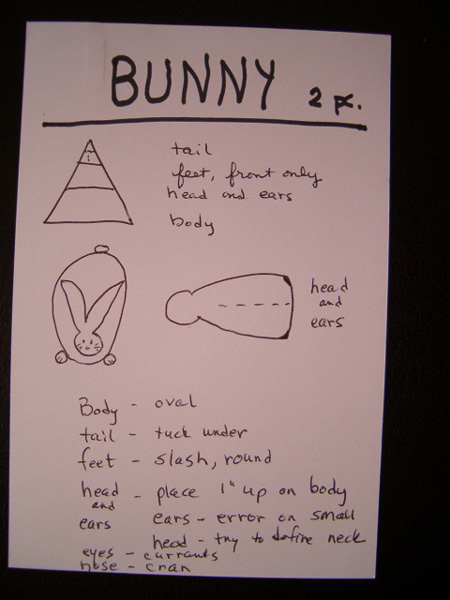 BUNNY 2 pc.
tail
feet, front only
head and ears
body
head
and
ears
Body - oval
tail - tuck under
feet - slash, round
head - place 1" up on body
and
ears ears - error on small
head - try to define neck
eyes - currants
nose - cran